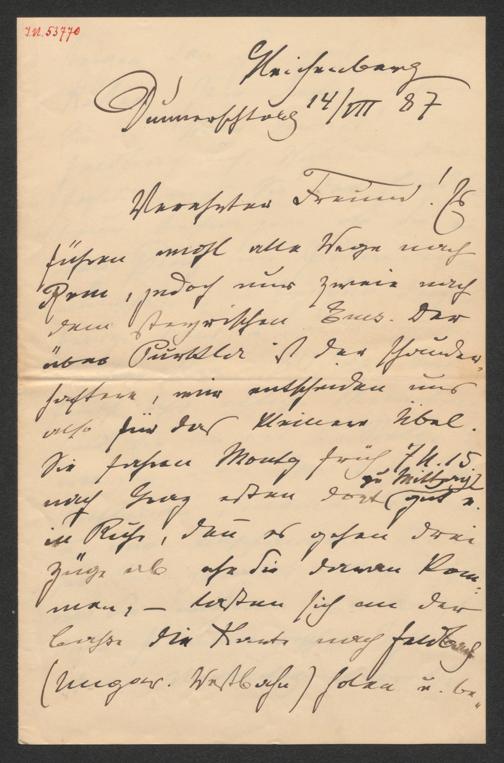 I.N. 53770
Gleichenberg
Donnerschtag 14/VII 87
Verehrter Freund! Es
führen wohl alle Wege nach
Rom, jedoch nur zweie nach
dem steyrischen Ems. Der
über Purkla ist der schauder-
haftere, wir entscheiden uns
also für das kleinere Übel.
Sie fahren Montg früh 7 U. 15
nach Graz essen dort gut u.
zu Mittag
in Ruhe, den es gehen drei
Züge ab ehe Sie daran kom-
men, – lassen sich an der
die Karte nach Feldbach
(Ungar. Westbahn) holen u. be-